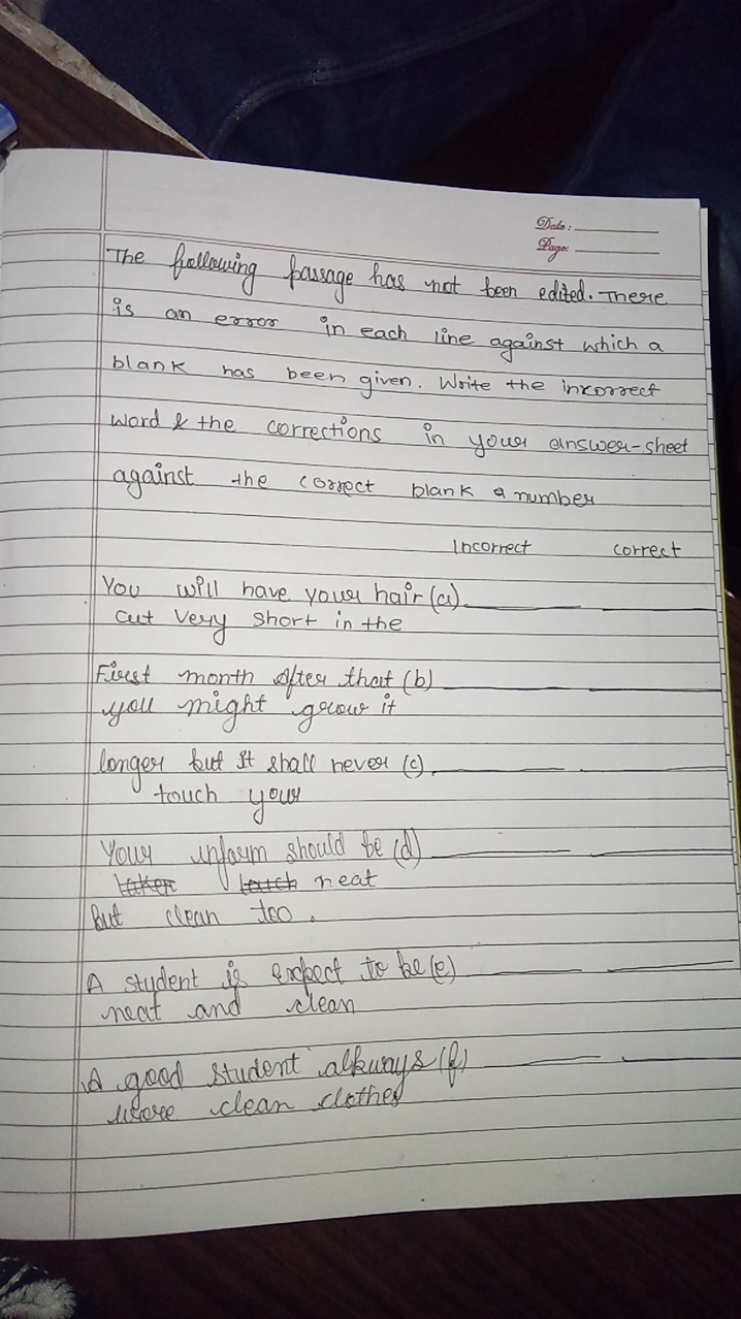 Date:
Page:
The following passage has not been edited. There
is an error in each line against which a
blank has been given. Write the incorrect
word & the corrections in your answer-sheet
against the correct blank a number
Incorrect correct
You will have your hair (a)
cut very short in the
First month after that (b)
you might grow it
longer but it shall never (c)
touch your
Your unform should be (d)
neat
But clean too.
A student is expect to be (e)
neat and clean
A good student alkways (f)
wore clean clothes